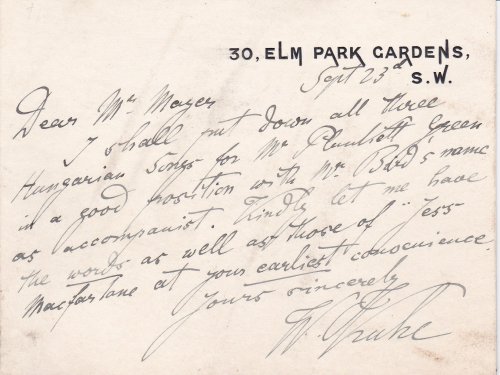 30, ELM PARK GARDENS,
S.W.
Sept 23d
Dear Mr Mayer
I shall put down all three
Hungarian Songs for Mr Plunkett Green
in a good position with Mr Bird's name
as accompanist. Kindly let me have
the words as well as those of "Jess
Macfarlane at your earliest convenience.
Yours sincerely
W. Kruhe